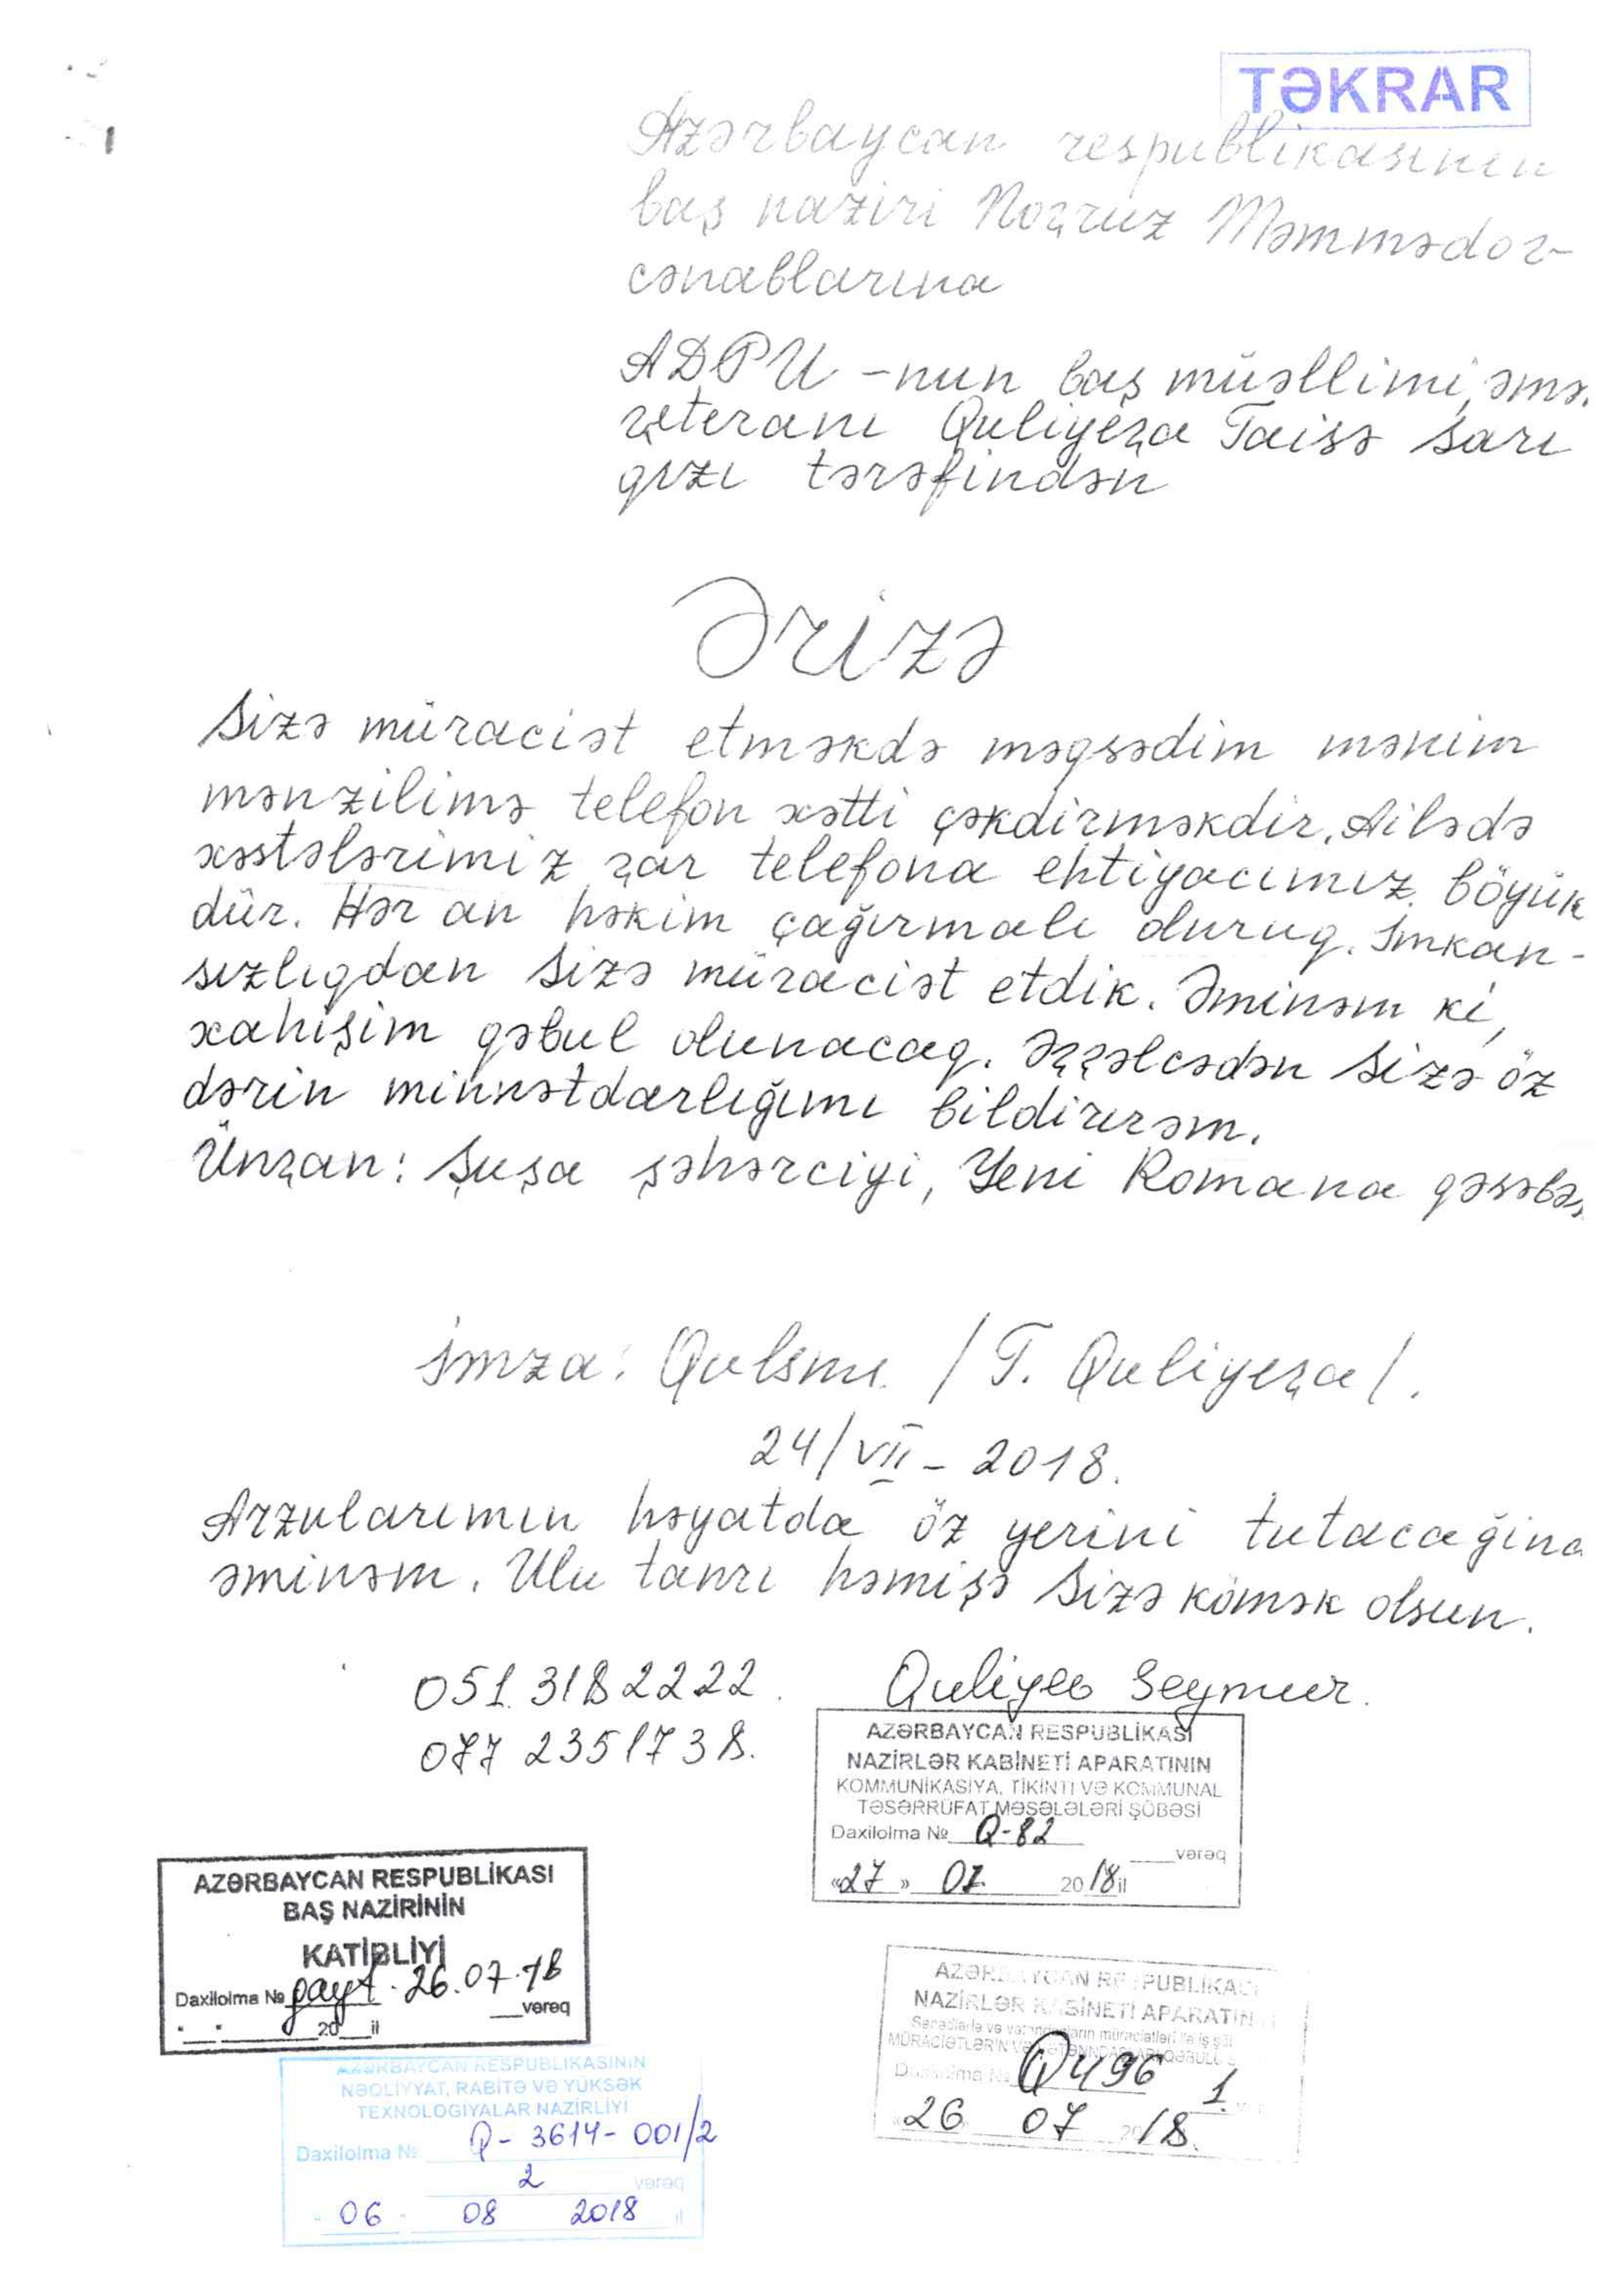 TƏKRAR
Azərbaycan respublikasının
baş naziri Novruz Məmmədov
cənablarına
ADPU-nun baş müəllimi, əmə.
veteranı Quliyeva Taisə Sarı
qızı tərəfindən
Ərizə
Sizə müraciət etməkdə məqsədim mənim
mənzilimə telefon xətti çəkdirməkdir. Ailədə
xəstələrimiz var telefona ehtiyacımız böyük
dür. Hər an həkim çağırmalı oluruq. İmkan-
sızlıqdan Sizə müraciət etdik. Əminəm ki,
xahişim qəbul olunacaq. Əvvəlcədən Sizə öz
dərin minnətdarlığımı bildirirəm.
Ünvan: Şuşa şəhərciyi, Yeni Romana qəsəbəs
İmza: /T. Quliyeva/.
24/VII-2018.
Arzularımın həyatda öz yerini tutacağına
əminəm. Ulu tanrı həmişə Sizə kömək olsun.
051 3182222. Quliyev Seymur.
077 2351738.
AZƏRBAYCAN RESPUBLİKASI
NAZİRLƏR KABİNETİ APARATININ
KOMMUNİKASİYA, TİKİNTİ VƏ KOMMUNAL
TƏSƏRRÜFAT MƏSƏLƏLƏRİ ŞÖBƏSİ
Daxilolma № Q-82
vərəq
«27» 07 2018 il
AZƏRBAYCAN RESPUBLİKASI
BAŞ NAZİRİNİN
KATİBLİYİ
Daxilolma № qayt. 26.07.18
vərəq
20 il
AZƏRBAYCAN RESPUBLİKASI
NAZİRLƏR KABİNETİ APARATIN
Sənədlərlə və vətəndaşların müraciətləri ilə iş şöb
MÜRACİƏTLƏRİN VƏ VƏTƏNDAŞLARI QƏBULU
Daxilolma № Q496 1.
26 07 2018.
AZƏRBAYCAN RESPUBLİKASININ
NƏQLİYYAT, RABİTƏ VƏ YÜKSƏK
TEXNOLOGİYALAR NAZİRLİYİ
Daxilolma № Q-3614-001/2
2 vərəq
06 08 2018 il